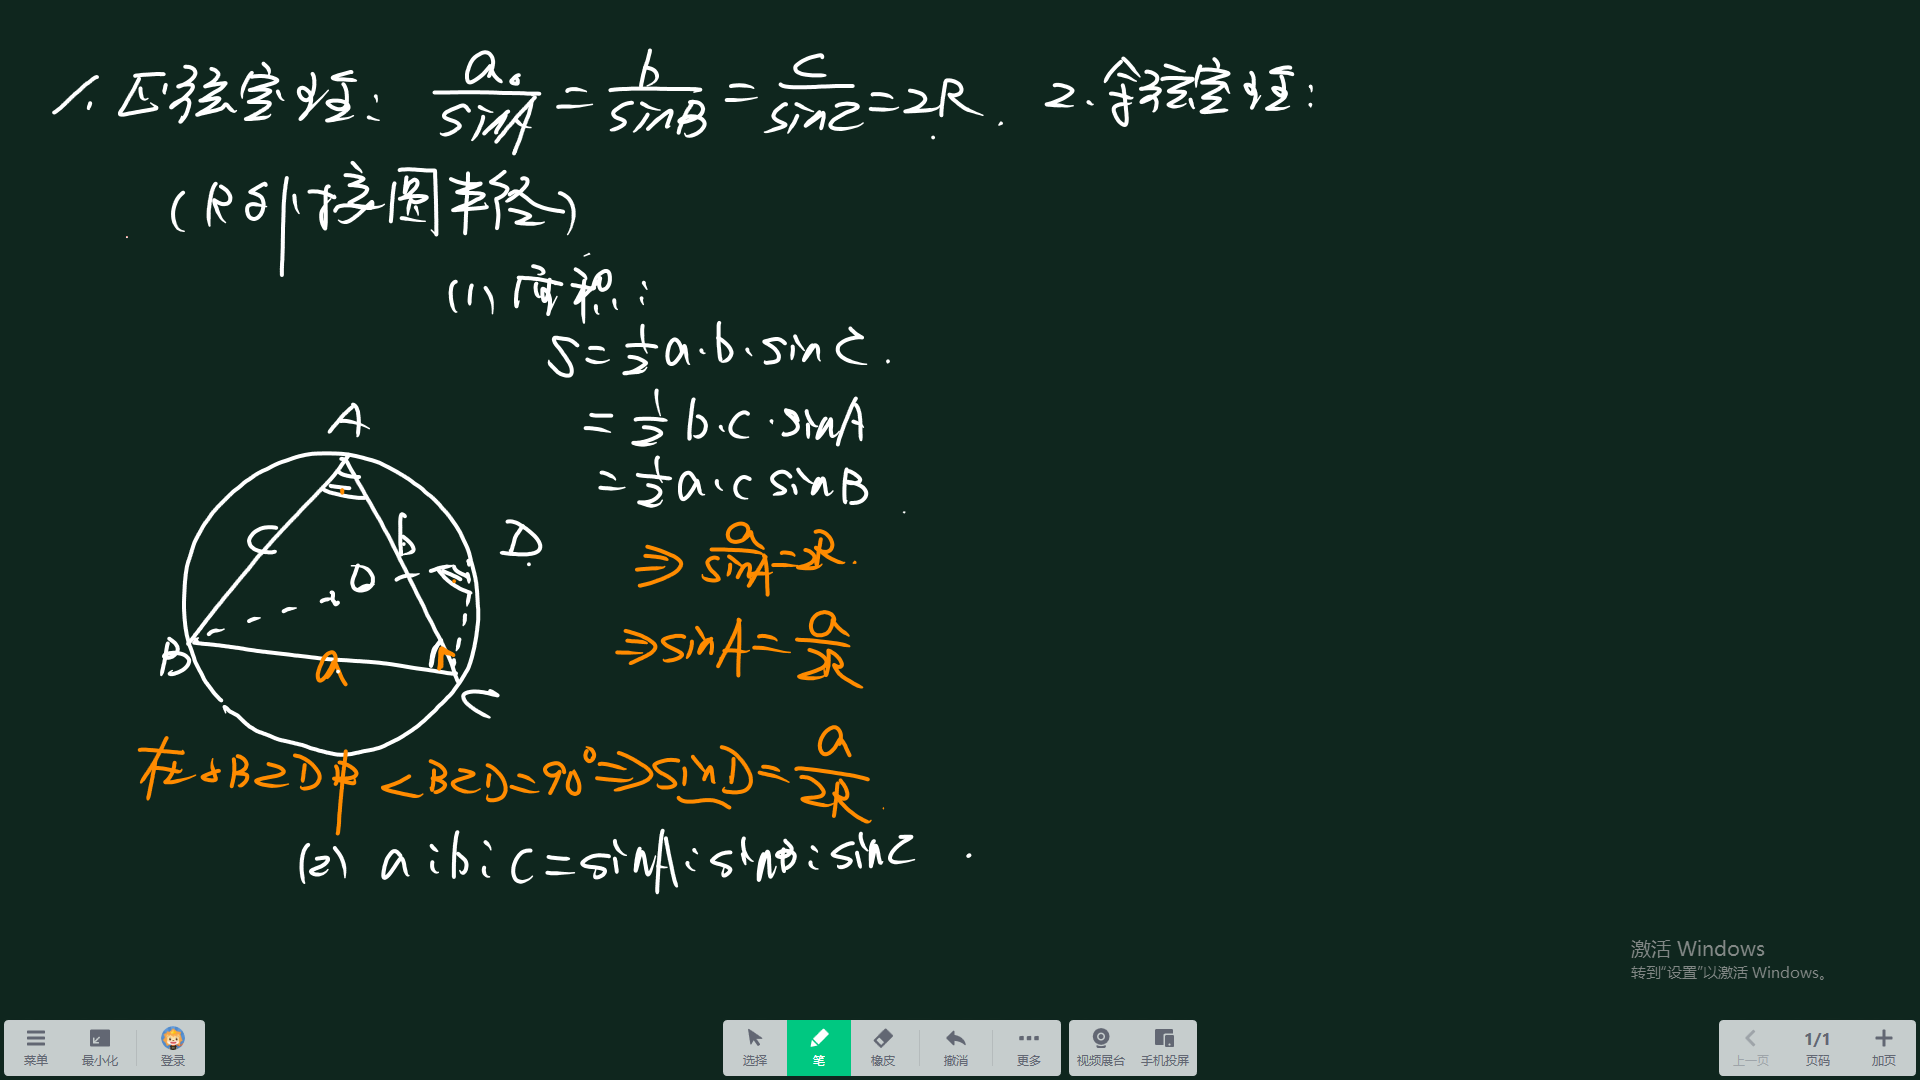 1. 正弦定理: a/sinA = b/sinB = c/sinC = 2R. 2. 余弦定理:
(R为外接圆半径)
(1) 面积:
S = 1/2 a·b·sinC.
= 1/2 b·c·sinA
= 1/2 a·c sinB
A
c b O D
B a C
⇒ a/sinA = 2R.
⇒ sinA = a/2R
在△BCD中 ∠BCD = 90° ⇒ sinD = a/2R.
(2) a:b:c = sinA:sinB:sinC.
激活 Windows
转到“设置”以激活 Windows。
菜单 最小化 登录 选择 笔 橡皮 撤消 更多 视频展台 手机投屏 上一页 1/1 页码 加页